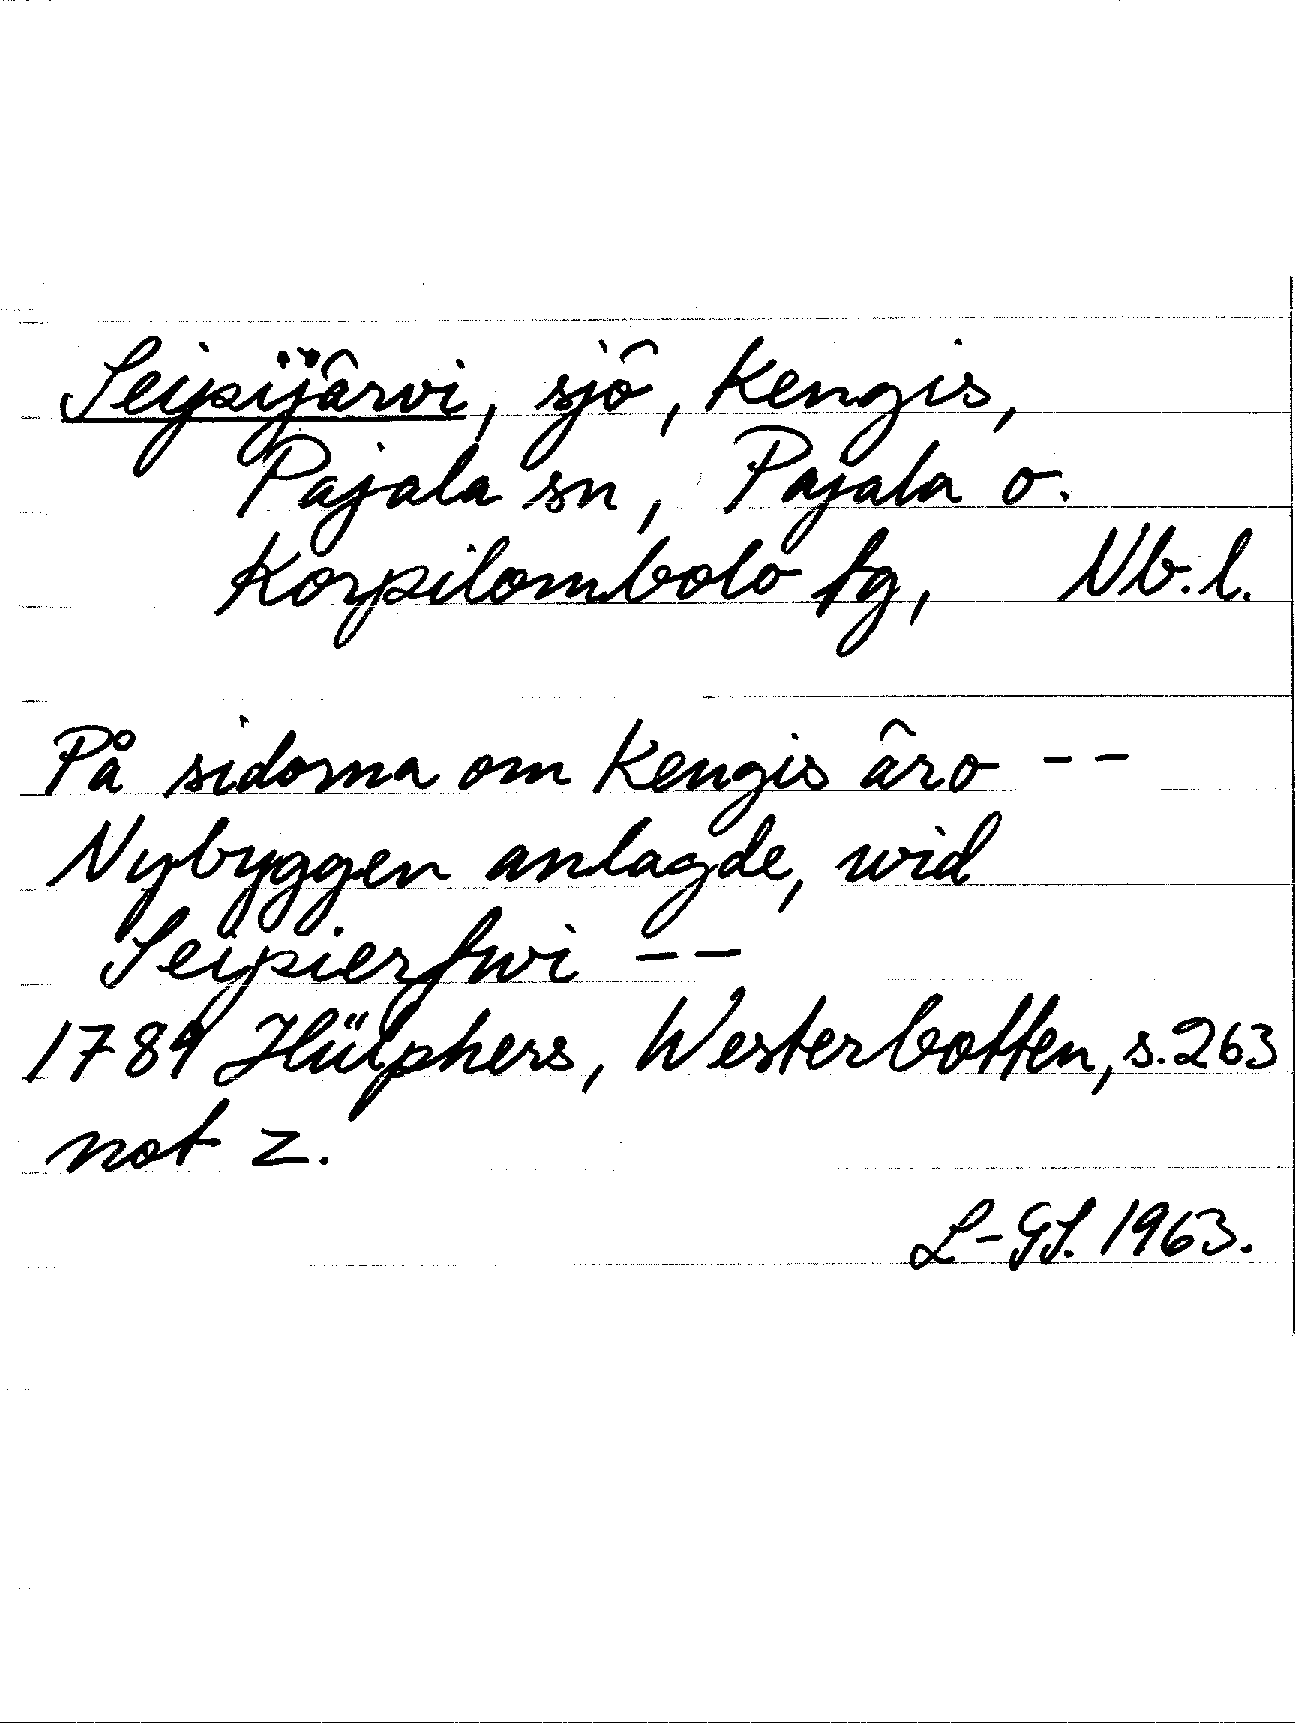 Seipijärvi, sjö, Kengis,
Pajala sn, Pajala o.
Korpilombolo tg, Nb.l.
På sidorna om Kengis äro --
Nybyggen anlagde, wid
Seipierfwi --
1789 Hülphers, Westerbotten, s. 263
not z.
L-GL. 1963.